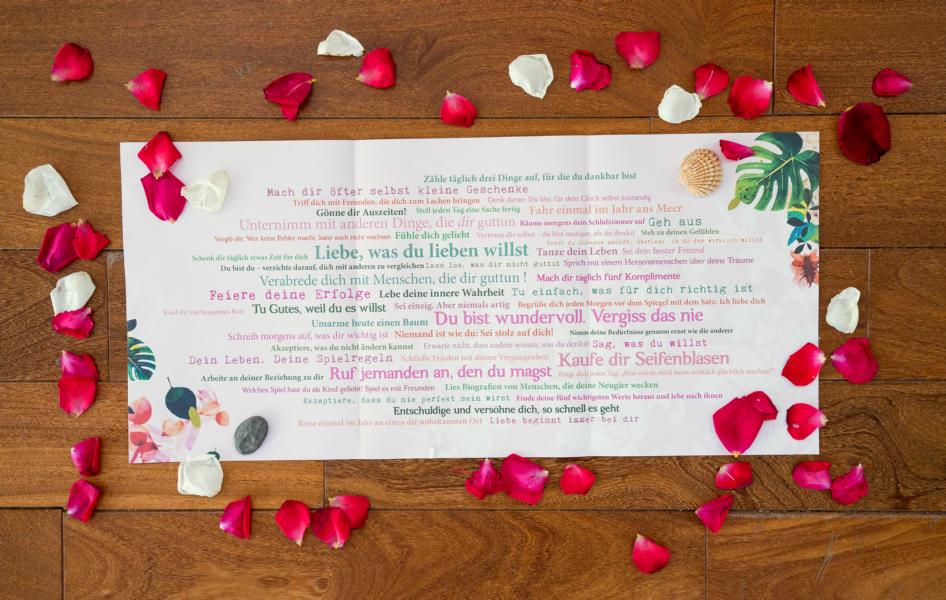 Zähle täglich drei Dinge auf, für die du dankbar bist
Mach dir öfter selbst kleine Geschenke
Triff dich mit Freunden, die dich zum Lachen bringen Denk daran: Du bist für dein Glück selbst zuständig
Gönne dir Auszeiten! Stell jeden Tag eine Sache fertig Fahr einmal im Jahr ans Meer
Unternimm mit anderen Dinge, die dir guttun Räume morgens dein Schlafzimmer auf Geh aus
Vergib dir: Wer keine Fehler macht, kann auch nicht wachsen Fühle dich geliebt Vertraue dir selbst – du bist mutiger, als du denkst Steh zu deinen Gefühlen
Schenk dir täglich etwas Zeit für dich Liebe, was du lieben willst Bevor du Ja sagst, überlege, ob du das wirklich willst
Tanze dein Leben Sei dein bester Freund
Du bist du – verzichte darauf, dich mit anderen zu vergleichen Lass los, was dir nicht guttut Sprich mit einem Herzensmenschen über deine Träume
Verabrede dich mit Menschen, die dir guttun! Mach dir täglich fünf Komplimente
Feiere deine Erfolge Lebe deine innere Wahrheit Tu einfach, was für dich richtig ist
Kauf dir ein bequemes Bett Tu Gutes, weil du es willst Sei einzig. Aber niemals artig Begrüße dich jeden Morgen vor dem Spiegel mit dem Satz: Ich liebe dich
Umarme heute einen Baum Du bist wundervoll. Vergiss das nie
Schreib morgens auf, was dir wichtig ist Niemand ist wie du: Sei stolz auf dich! Nimm deine Bedürfnisse genauso ernst wie die anderer
Akzeptiere, was du nicht ändern kannst Erwarte nicht, dass andere wissen, was du denkst Sag, was du willst
Dein Leben. Deine Spielregeln Schließe Frieden mit deiner Vergangenheit Kaufe dir Seifenblasen
Arbeite an deiner Beziehung zu dir Ruf jemanden an, den du magst Frage dich jeden Tag: „Was würde mich heute wirklich glücklich machen?“
Welches Spiel hast du als Kind geliebt? Spiel es mit Freunden Lies Biografien von Menschen, die deine Neugier wecken
Akzeptiere, dass du nie perfekt sein wirst Finde deine fünf wichtigsten Werte heraus und lebe nach ihnen
Entschuldige und versöhne dich, so schnell es geht
Reise einmal im Jahr an einen dir unbekannten Ort Liebe beginnt immer bei dir